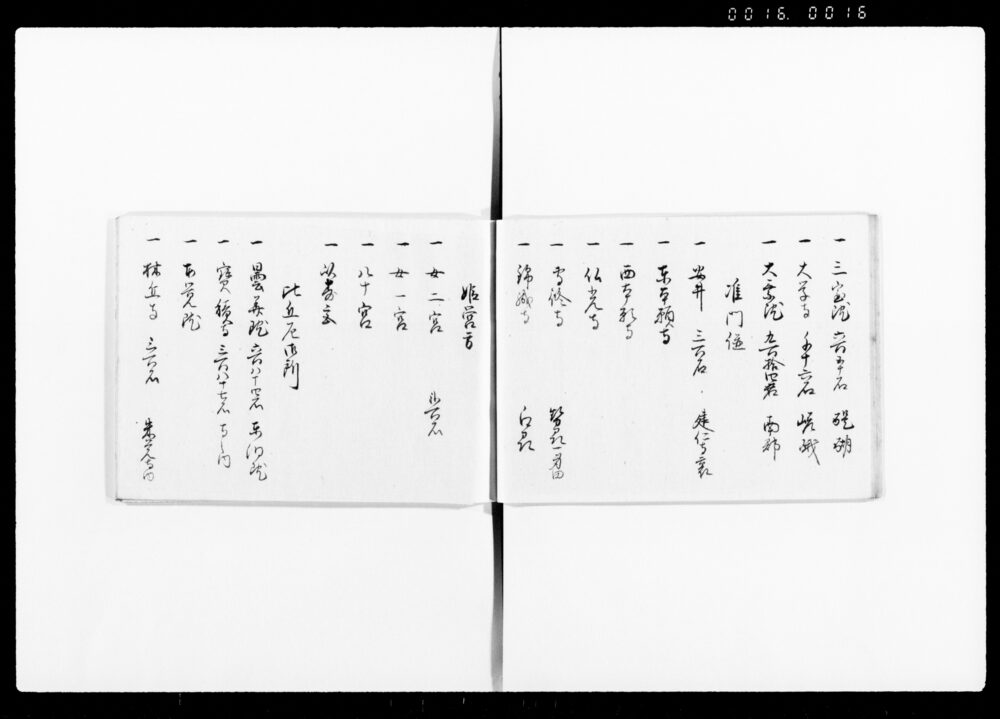 0016. 0016
一 三宝院 六百五十石 醍醐
一 大覚寺 千十六石 嵯峨
一 大乗院 九百拾四石 南都
准門跡
一 安井 三百石 建仁寺裏
一 東本願寺
一 西本願寺
一 仏光寺
一 専修寺 勢州一身田
一 錦織寺 江州
姫宮方
一 女二宮 三百石
一 女一宮
一 八十宮
一
比丘尼御所
一 曇華院 六百八十四石 東洞院
一 宝鏡寺 三百八十七石 寺ノ内
一 本覚院
一 林丘寺 三百石 修学寺内